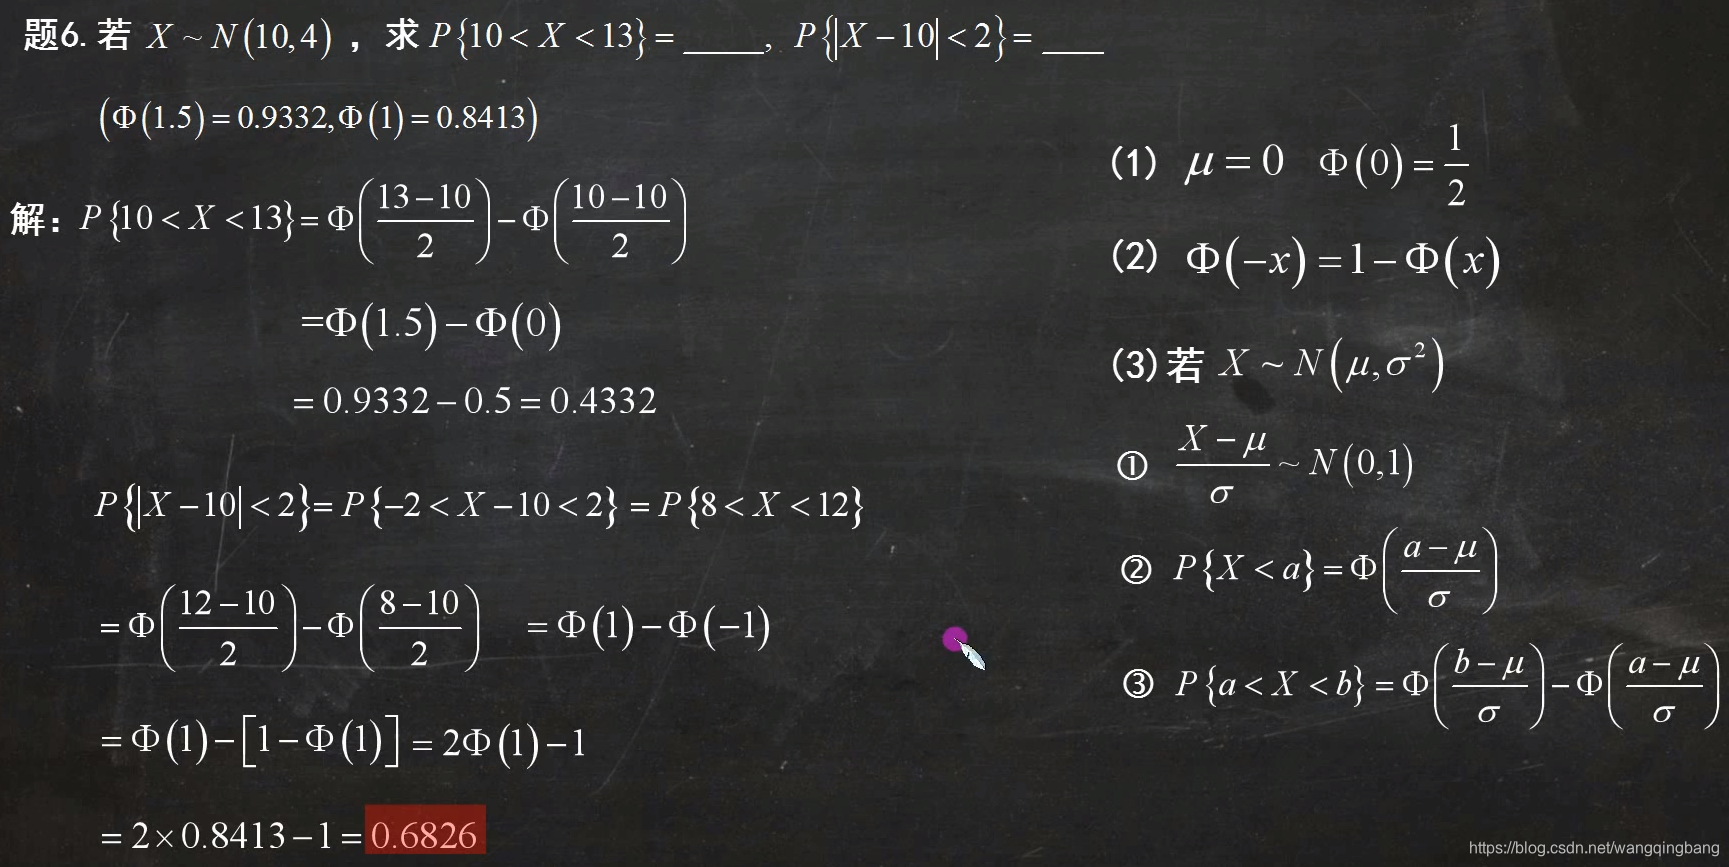 题6. 若 X ~ N(10,4) ，求 P{10 < X < 13} = ____, P{|X − 10| < 2} = ___
(Φ(1.5) = 0.9332, Φ(1) = 0.8413)
解：P{10 < X < 13} = Φ((13−10)/2) − Φ((10−10)/2)
=Φ(1.5) − Φ(0)
= 0.9332 − 0.5 = 0.4332
P{|X − 10| < 2} = P{−2 < X − 10 < 2} = P{8 < X < 12}
= Φ((12−10)/2) − Φ((8−10)/2) = Φ(1) − Φ(−1)
= Φ(1) − [1 − Φ(1)] = 2Φ(1) − 1
= 2 × 0.8413 − 1 = 0.6826
(1) μ = 0 Φ(0) = 1/2
(2) Φ(−x) = 1 − Φ(x)
(3) 若 X ~ N(μ, σ²)
① (X − μ)/σ ~ N(0,1)
② P{X < a} = Φ((a − μ)/σ)
③ P{a < X < b} = Φ((b − μ)/σ) − Φ((a − μ)/σ)
https://blog.csdn.net/wangqingbang